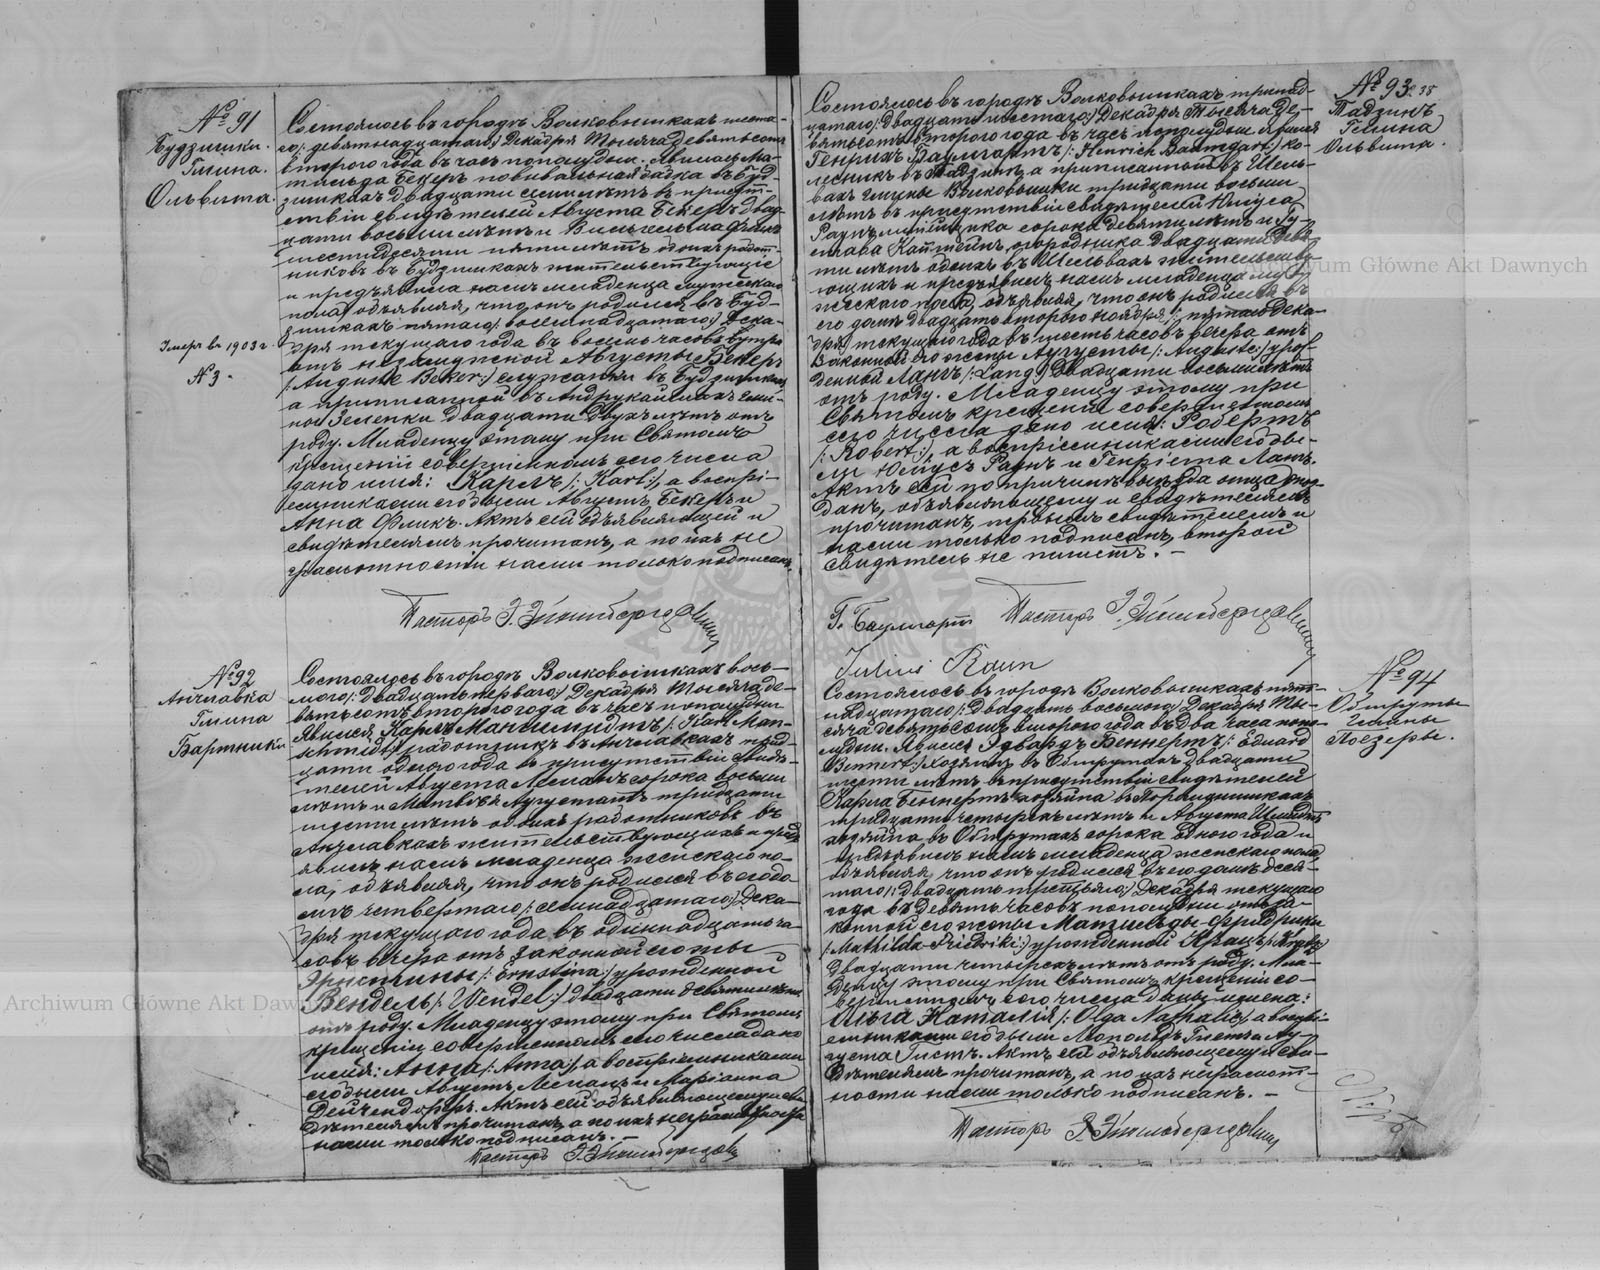 № 91
Будзишки.
Гмина.
Ольвита.
Умеръ въ 1903 г.
№ 3.
Состоялось въ городѣ Волковышкахъ шеста-
го /: девятнадцатаго :/ Декабря тысяча девятьсотъ
втораго года въ часъ пополудни. Явилась Ма-
тильда Бекеръ повивальная бабка въ Буд-
зишкахъ двадцати семи лѣтъ въ присут-
ствіи свидѣтелей Августа Бекеръ двад-
цати восьми лѣтъ и Вильгельма
шестидесяти пяти лѣтъ обоихъ работ-
никовъ въ Будзишкахъ жительствующихъ
и предъявила намъ младенца мужескаго
пола, объявляя, что онъ родился въ Буд-
зишкахъ пятаго /: восемнадцатаго :/ Дека-
бря текущаго года въ восемь часовъ утра
отъ незамужней Августы Бекеръ
/: Auguste Beker :/ служанки въ Будзишкахъ
а приписанной въ гми-
ны Зеленки двадцати двухъ лѣтъ отъ
роду. Младенцу этому при Святомъ
крещеніи совершенномъ сего числа
дано имя: Карлъ /: Karl :/, а воспрі-
емниками его были Августъ Бекеръ и
Анна Фликъ. Актъ сей объявляющей и
свидѣтелямъ прочитанъ, а по ихъ не
грамотности нами только подписанъ.
Пасторъ
№ 92
Анчлавка
Гмина
Бартники
Состоялось въ городѣ Волковышкахъ вось-
маго /: двадцать перваго :/ Декабря тысяча де-
вятьсотъ втораго года въ часъ пополудни
Явился Карлъ Маншмидтъ /: Karl Man-
schmidt :/ работникъ въ Анчлавкахъ трид-
цати одного года въ присутствіи свидѣ-
телей Августа Леманъ сорока восьми
лѣтъ и Матвѣя Августатъ тридцати
шести лѣтъ обоихъ работниковъ въ
Анчлавкахъ жительствующихъ и предъ-
явилъ намъ младенца женскаго по-
ла, объявляя, что онъ родился въ его до-
мѣ четвертаго /: семнадцатаго :/ Дека-
бря текущаго года въ одиннадцать ча-
совъ вечера отъ законной его жены
Эрнстины /: Ernstina :/ урожденной
Вендель /: Wendel :/ двадцати девяти лѣтъ
отъ роду. Младенцу этому при Святомъ
крещеніи совершенномъ сего числа дано
имя: Анна /: Anna :/, а воспріемниками
его были Августъ Леманъ и Маріанна
Дейчендорферъ. Актъ сей объявляющему и сви-
дѣтелямъ прочитанъ, а по ихъ неграмотности
нами только подписанъ. —
Пасторъ
№ 93. 38
Тадзинъ
Гмина
Ольвита.
Состоялось въ городѣ Волковышкахъ тринад-
цатаго /: двадцать шестаго :/ Декабря тысяча де-
вятьсотъ втораго года въ часъ пополудни явился
Генрихъ Баумгартъ /: Henrich Baumgart :/ ко-
лесникъ въ Тадзинѣ, а приписанный въ Шель-
вахъ гмины Волковышки тридцати восьми
лѣтъ въ присутствіи свидѣтелей Юлюса
Раунъ сорока девяти лѣтъ и Гу-
става огородника двадцати девя-
ти лѣтъ обоихъ въ Шельвахъ жительству-
ющихъ и предъявилъ намъ младенца му-
жескаго пола, объявляя, что онъ родился въ
его домѣ двадцать втораго Ноября /: пятаго Дека-
бря текущаго года въ шесть часовъ вечера отъ
законной его жены Августы /: Auguste :/ урож-
денной Лангъ /: Lang :/ двадцати восьми лѣтъ
отъ роду. Младенцу этому при
Святомъ крещеніи совершенномъ
сего числа дано имя: Робертъ
/: Robert :/, а воспріемниками его бы-
ли Юлюсъ Раунъ и Генріета Лангъ.
Актъ сей по причинѣ выѣзда отца опоз-
данъ, объявляющему и свидѣтелямъ
прочитанъ, первымъ свидѣтелемъ и
нами только подписанъ, второй
свидѣтель не пишетъ. —
Г. Баумгартъ Пасторъ
Julius Raun
№ 94
Обшруты
Гмины
Поезеры.
Состоялось въ городѣ Волковышкахъ пят-
надцатаго /: двадцать восьмаго :/ Декабря ты-
сяча девятьсотъ втораго года въ два часа попо-
лудни. Явился Эдвардъ Беннертъ /: Eduard
Bennert :/ хозяинъ въ Обшрутахъ двадцати
шести лѣтъ въ присутствіи свидѣтелей
Карла Беннертъ хозяина въ
тридцати четырехъ лѣтъ и Августа Шмидтъ
хозяина въ Обшрутахъ сорока одного года и
предъявилъ намъ младенца женскаго пола,
объявляя, что онъ родился въ его домѣ деся-
таго /: двадцать третьяго :/ Декабря текущаго
года въ девять часовъ пополудни отъ за-
конной его жены Матильды-Фридрики
/: Mathilda-Friedriki :/ урожденной Крацъ
двадцати четырехъ лѣтъ отъ роду. Мла-
денцу этому при Святомъ крещеніи со-
вершенномъ сего числа даны имена:
Ольга Наталія /: Olga Natalie :/, а воспрі-
емниками его были Леопольдъ Гистъ и Ав-
густа Гистъ. Актъ сей объявляющему и сви-
дѣтелямъ прочитанъ, а по ихъ неграмот-
ности нами только подписанъ. —
Пасторъ
Archiwum Główne Akt Dawnych
Archiwum Główne Akt Dawnych